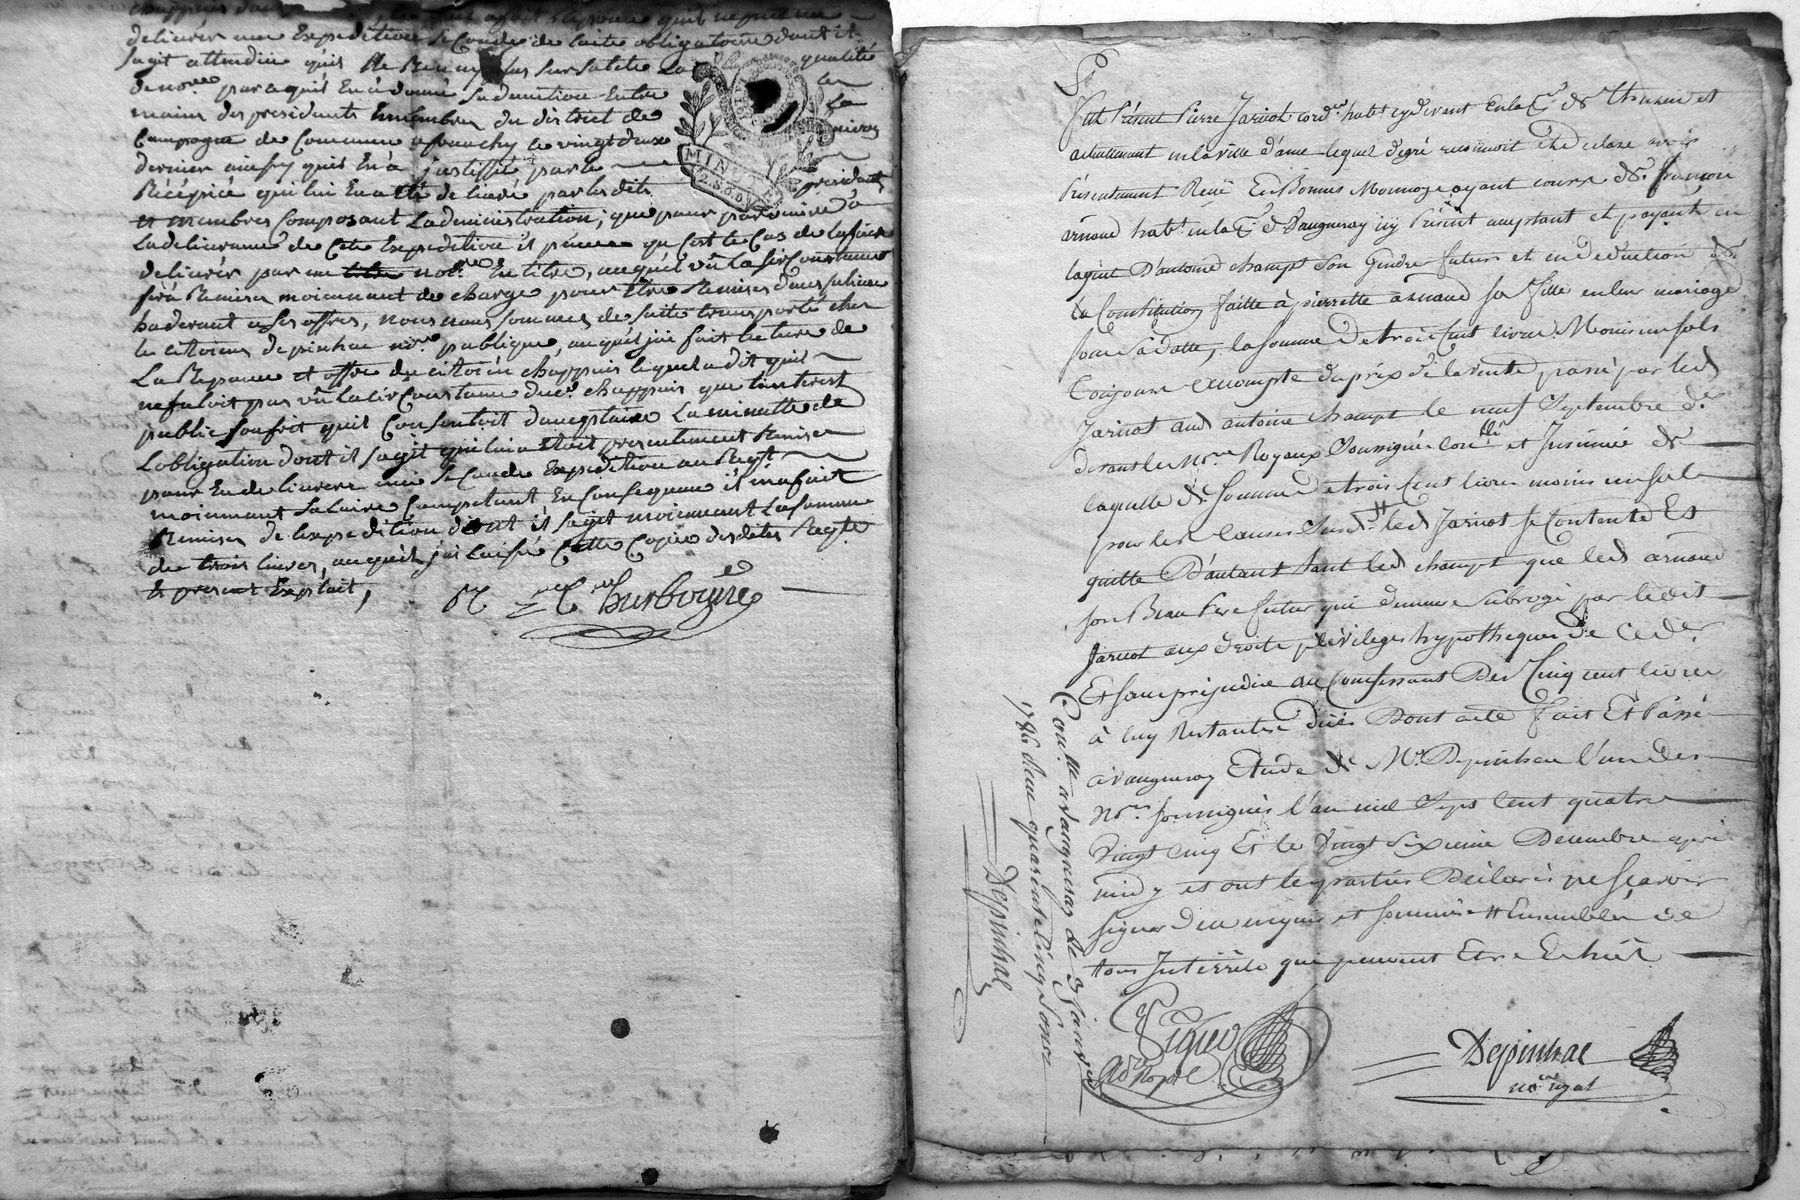 delivrer une Expedition Seconde de laite obligatoire dont il
sagit attendu quis
qualité
de no.re parcequil En a donné Sa demition Entre les
mains des presidents Emembres du district de La
Campagne de Commune afranchy le vingt deux
dernier ainsy quil En a justiffié par le
Récépicé qui lui En a Eté de livré par les dits presidents
et membres Composant Ladministration; que pour parvenir à
La delivrance de Cette Expedition il pense que Cest le Cas de la faire
delivrer par un no.re En titre, auquel vû La Circonstance
moienant de charge pour être Remises dans
offres, nous nous sommes de suite transporté chez
le citoien depinhac no.re publique, auquel jai fait lecture de
La Reponse et offre du citoien chappuis lequel a dit quil
ne faloit pas vû La Circonstance chappuis que linterest
public souffrit quil Consentoit daccepter La minutte de
Lobligation dont il sagit qui lui a Etoit presentement Remise
pour En delivrer une Seconde Expedition au Reqt
moienant Salaire Competant En Consequence il ma fait
Remise de lexpedition dont il sagit moienant La somme
de trois livres, auquel jai Laissé Cette Copie desdites Reqte
et present Exploit,
MINUTE
2.S.6.D.
Fut Présent Pierre Jaricot cord.er hab.t cydevant en la de thurins et
actuellement en la ville d'anse lequel degré reconnoit Et declare avoir
Présentement Reçu En Bonnes Monnoye ayant cours de françois
arnaud hab.t en la de Vaugneray icy Présent acceptant et payant en
lacquit D'antoine champt Son Gendre futur et en deduction de
la Constitution faitte à pierrette arnaud sa fille en leur mariage
sous Sa datte, la somme de trois Cent livres Moins un sols
Toujours accompte du prix de la vente passé par led
Jaricot aud antoine champt le neuf Septembre d.er
devant les No.res Royaux Soussignés et Insinuée de
laquelle d.e Somme de trois Cent livres moins un sols
pour les causes Susd.es led Jaricot Se Contente Et
quitte D'autant tant led champt que led arnaud
son Beau Pere futur qui demeure Subrogé par ledit
Jaricot aux droits, privileges hypotheques de Ced.er
Et Sans prejudice au Confessant Des Cinq cent livres
à luy Restantes Dües Dont acte Fait Et Passé
à vaugneray Etude de M.e Depinhac l'un des
No.res soussignés l'an mil Sept Cent quatre
Vingt Cinq Et le Vingt Sixieme Decembre après
midy et ont les parties Déclarés ne Sçavoir
signer de ce enquis et sommés # Ensembles de
tous Intérêts qui peuvent Etre Echüs
Cont.lé a Vaugneray le 3 Janvier
1786 Reçu quarente Cinq Sous
Depinhac
Depinhac
no.re royal